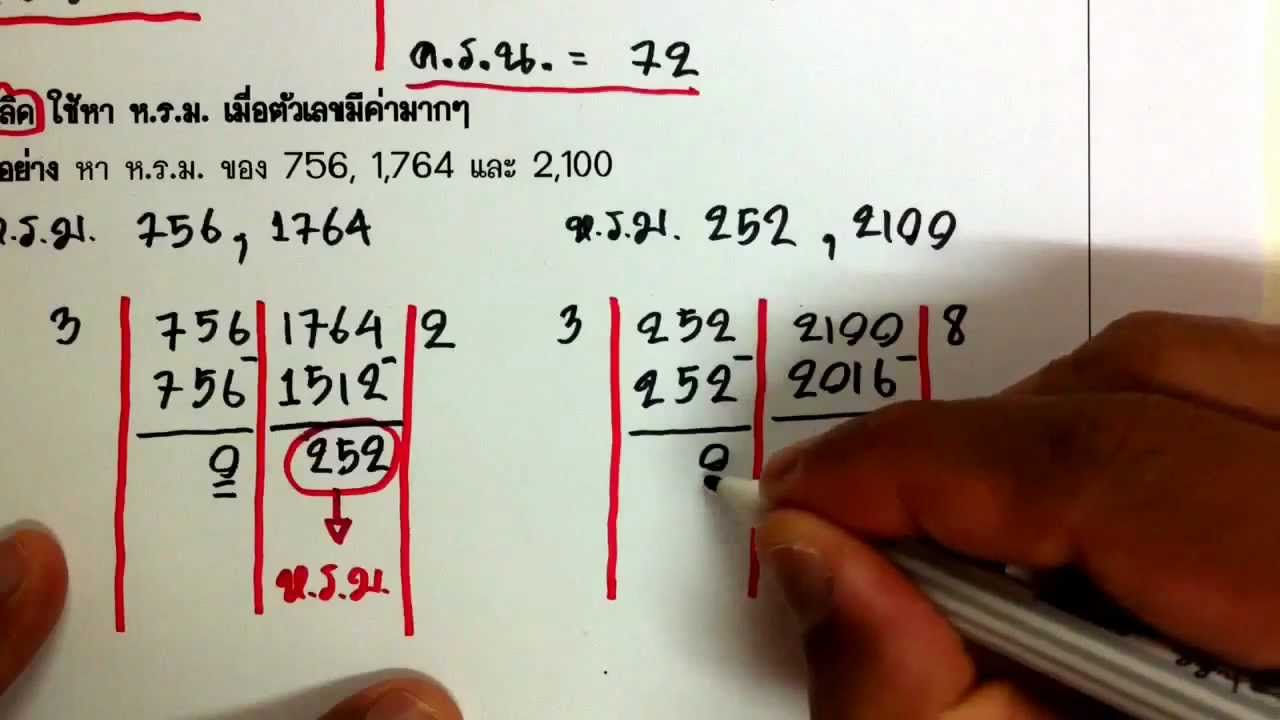 ค.ร.น. = 72
ลิด ใช้หา ห.ร.ม. เมื่อตัวเลขมีค่ามากๆ
อย่าง หา ห.ร.ม. ของ 756, 1,764 และ 2,100
.ร.ม. 756, 1764
ห.ร.ม. 252, 2100
3 756 1764 2
756 - 1512 -
0 252
ห.ร.ม.
3 252 2100 8
252 - 2016 -
0